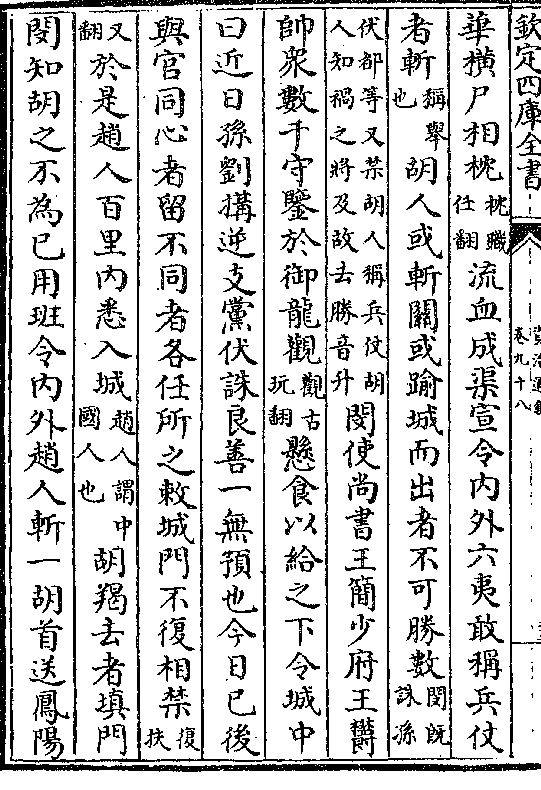 欽定四庫全書
資治通鑑
卷九十八
華橫尸相枕枕職任翻流血成渠宣令內外六夷敢稱兵仗
者斬稱舉也胡人或斬關或踰城而出者不可勝數閔既誅孫
伏都等又禁胡人稱兵仗胡人知禍之將及故去勝音升閔使尚書王簡少府王欝
帥衆數千守鑒於御龍觀觀古玩翻懸食以給之下令城中
曰近日孫劉搆逆支黨伏誅良善一無預也今日已後
與官同心者留不同者各任所之敕城門不復相禁復扶
又翻於是趙人百里內悉入城趙人謂中國人也胡羯去者填門
閔知胡之不為已用班令內外趙人斬一胡首送鳳陽